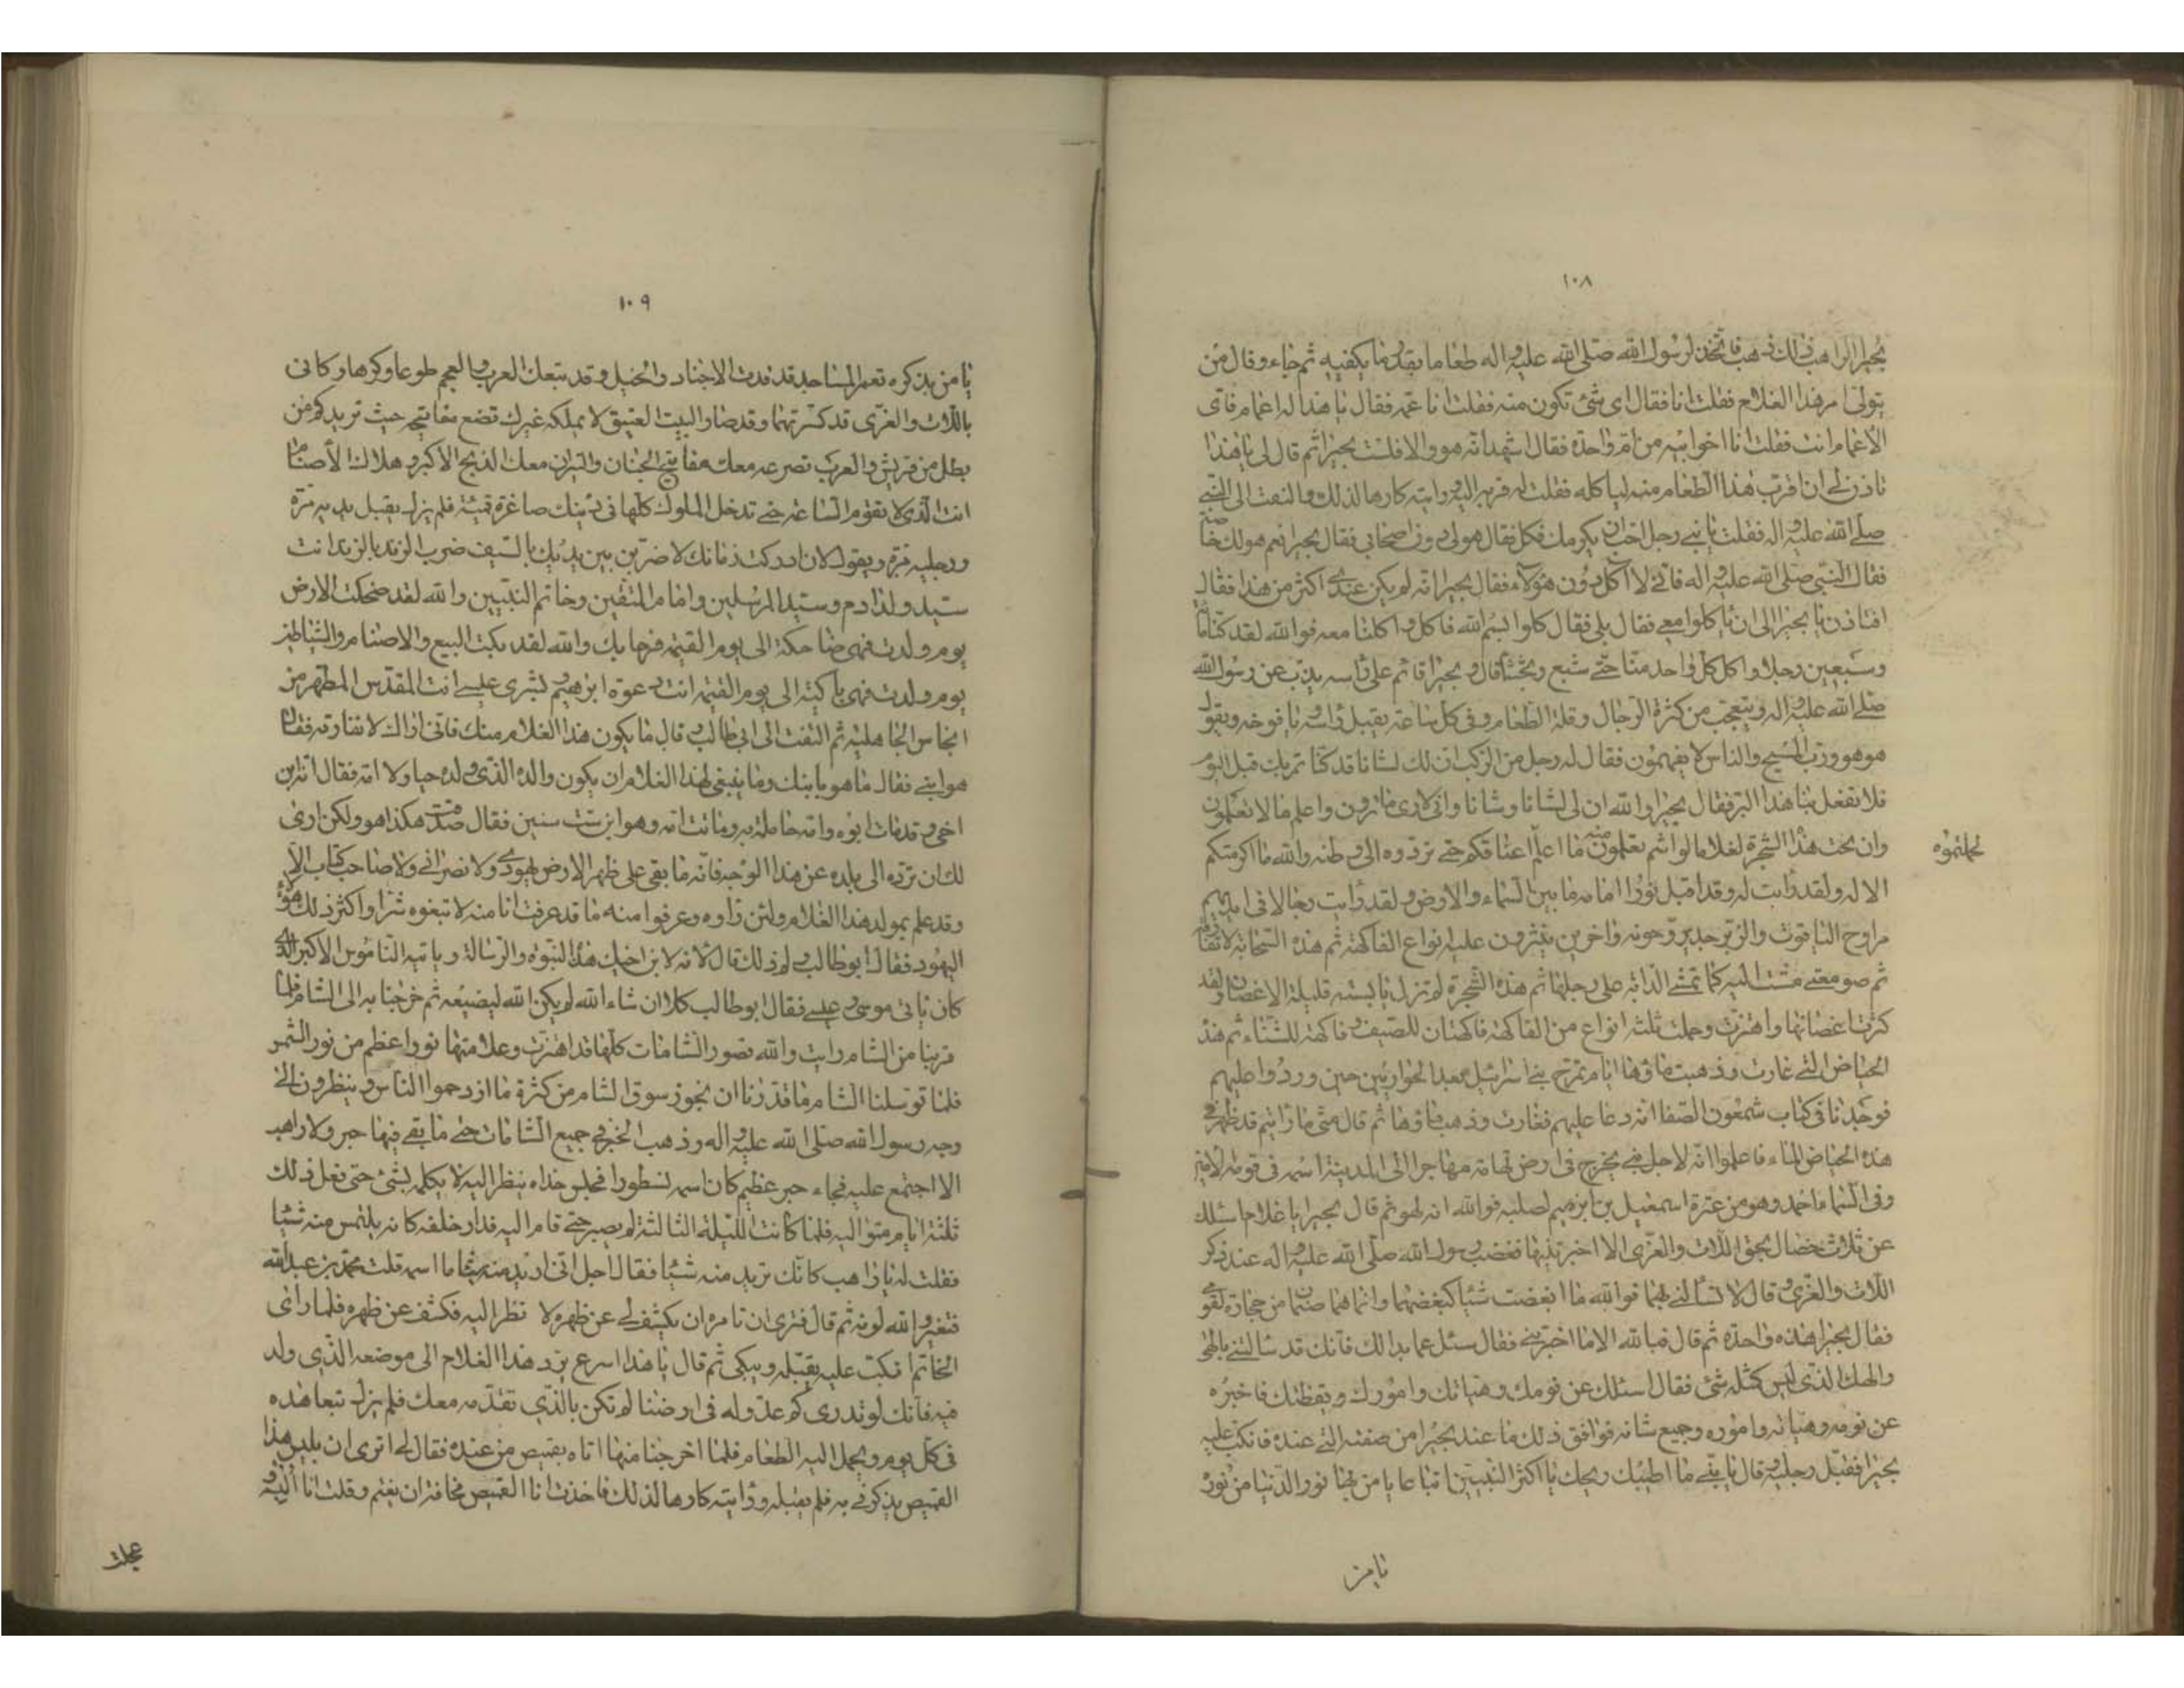 ١٠٨
بحيرا الراهب فى ذلك فذهب فاتخذ لرسول الله صلى الله عليه واله طعاما بقدر ما يكفيه ثم جاء وقال من
يتولى امر هذا الغلام فقلت انا فقال اى شئ تكون منه فقلت انا عمه فقال يا هذا له اعمام فاى
الاعمام انت فقلت انا اخو ابيه من ام واحدة فقال اشهد انه هو والا فلست بحيرا ثم قال لى يا هذا
تاذن لى ان اقرب هذا الطعام منه لياكله فقلت له قربه اليه ورايته كارها لذلك والتفت الى النبى
صلى الله عليه واله فقلت يا بنى رجل احب ان يكرمك فكل فقال هو لى دون اصحابى فقال بحيرا نعم هو لك خاصة
فقال النبى صلى الله عليه واله فانى لا اكل دون هؤلاء فقال بحيرا انه لم يكن عندى اكثر من هذا فقال
افتاذن يا بحيرا الى ان ياكلوا معى فقال بلى فقال كلوا بسم الله فاكل واكلنا معه فوالله لقد كنا مائة
وسبعين رجلا واكل كل واحد منا حتى شبع وتجشأ قال وبحيرا قائم على راسه يذب عن رسول الله
صلى الله عليه واله ويتعجب من كثرة الرجال وقلة الطعام وفى كل ساعة يقبل راسه ويافوخه ويقول
هو هو ورب المسيح والناس لا يفهمون فقال له رجل من الركب ان لك لشانا قد كنا نمر بك قبل اليوم
فلا تفعل بنا هذا البر فقال بحيرا والله ان لى لشانا وشانا وانى لارى ما لا ترون واعلم ما لا تعلمون
وان تحت هذه الشجرة لغلاما لو انتم تعلمون منه ما اعلم لحملتموه على اعناقكم حتى تردوه الى وطنه والله ما اكرمتكم
الا له ولقد رايت له وقد اقبل نورا امامه ما بين السماء والارض ولقد رايت رجالا فى ايديهم
مراوح الياقوت والزبرجد يروحونه واخرين ينثرون عليه انواع الفاكهة ثم هذه السحابة لا تفارقه
ثم صومعتى مشت اليه كما تمشى الدابة على رجلها ثم هذه الشجرة لم تزل يابسة قليلة الاغصان ولقد
كثرت اغصانها واهتزت وحملت ثلثة انواع من الفاكهة فاكهتان للصيف وفاكهة للشتاء ثم هذه
الحياض التى غارت وذهب ماؤها ايام تمرج بنى اسرائيل بعد الحواريين حين وردوا عليهم
فوجدنا فى كتاب شمعون الصفا انه دعا عليهم فغارت وذهب ماؤها ثم قال متى ما رايتم قد ظهر فى
هذه الحياض الماء فاعلموا انه لاجل نبى يخرج فى ارض تهامة مهاجرا الى المدينة اسمه فى قومه الامين
وفى السماء احمد وهو من عترة اسمعيل بن ابرهيم لصلبه فوالله انه لهو ثم قال بحيرا يا غلام اسئلك
عن ثلاث خصال بحق اللات والعزى الا اخبرتنيها فغضب رسول الله صلى الله عليه واله عند ذكر
اللات والعزى وقال لا تسالنى بهما فوالله ما ابغضت شيئا كبغضهما وانما هما صنمان من حجارة لقومى
فقال بحيرا هذه واحدة ثم قال فبالله الا ما اخبرتنى فقال سئل عما بدا لك فانك قد سالتنى بالهى
والهك الذى ليس كمثله شئ فقال اسئلك عن نومك وهيأتك وامورك ويقظتك فاخبره
عن نومه وهيأته واموره وجميع شانه فوافق ذلك ما عند بحيرا من صفته التى عنده فانكب عليه
بحيرا فقبل رجليه وقال يا بنى ما اطيبك واطيب ريحك يا اكثر النبيين اتباعا يا من بهاء نور الدنيا من نوره
لحملتموه
يا من
١٠٩
يا من بذكره تعمر المساجد قد قدت الاجناد والخيل وقد تبعك العرب والعجم طوعا وكرها وكانى
باللات والعزى قد كسرتهما وقد صار البيت العتيق لا يملكه غيرك تضع مفاتيحه حيث تريد كم من
بطل من قريش والعرب تصرعه معك مفاتيح الجنان والنيران معك الذبح الاكبر وهلاك الاصنام
انت الذى لا تقوم الساعة حتى تدخل الملوك كلها فى دينك صاغرة قمئة فلم يزل يقبل يديه مرة
ورجليه مرة ويقول لان ادركت زمانك لاضربن بين يديك بالسيف ضرب الزند بالزند انت
سيد ولد ادم وسيد المرسلين وامام المتقين وخاتم النبيين والله لقد ضحكت الارض
يوم ولدت فهى ضاحكة الى يوم القيمة فرحا بك والله لقد بكت البيع والاصنام والشياطين
يوم ولدت فهى باكية الى يوم القيمة انت دعوة ابرهيم وبشرى عيسى انت المقدس المطهر من
انجاس الجاهلية ثم التفت الى ابى طالب وقال ما يكون هذا الغلام منك فانى اراك لا تفارقه فقال
هو ابنى فقال ما هو بابنك وما ينبغى لهذا الغلام ان يكون والده الذى ولده حيا ولا امه فقال انه ابن
اخى وقد مات ابوه وامه حاملة به وماتت امه وهو ابن ست سنين فقال صدقت هكذا هو ولكن ارى
لك ان ترده الى بلده عن هذا الوجه فانه ما بقى على ظهر الارض يهودى ولا نصرانى ولا صاحب كتاب الا
وقد علم بمولد هذا الغلام ولئن راوه وعرفوا منه ما قد عرفت انا منه لا تبغوه شرا واكثر ذلك هؤلاء
اليهود فقال ابو طالب ولم ذلك قال لانه لابن اخيك هذا النبوة والرسالة وياتيه الناموس الاكبر الذى
كان ياتى موسى وعيسى فقال ابو طالب كلا ان شاء الله لم يكن الله ليضيعه ثم خرجنا به الى الشام فلما
قربنا من الشام رايت والله قصور الشامات كلها قد اهتزت وعلا منها نورا اعظم من نور الشمس
فلما توسطنا الشام ما قدرنا ان نجوز سوق الشام من كثرة ما ازدحموا الناس وينظرون الى
وجه رسول الله صلى الله عليه واله وذهب الخبر فى جميع الشامات حتى ما بقى فيها حبر ولا راهب
الا اجتمع عليه فجاء حبر عظيم كان اسمه نسطورا فجلس حذاه ينظر اليه لا يكلمه بشئ حتى فعل ذلك
ثلثة ايام متوالية فلما كانت الليلة الثالثة لم يصبر حتى قام اليه فدار خلفه كانه يلتمس منه شيئا
فقلت له يا راهب كانك تريد منه شيئا فقال اجل انى اريد منه شيئا ما اسمه قلت محمد بن عبدالله
فتغير والله لونه ثم قال فترى ان تامره ان يكشف لى عن ظهره لا نظر اليه فكشف عن ظهره فلما راى
الخاتم انكب عليه يقبله ويبكى ثم قال يا هذا اسرع برد هذا الغلام الى موضعه الذى ولد
فيه فانك لو تدرى كم عدو له فى ارضنا لم تكن بالذى تقدمه معك فلم يزل يتعاهده
فى كل يوم ويحمل اليه الطعام فلما اخرجنا منها اتاه بقميص من عنده فقال لى اترى ان يلبس هذا
القميص يذكرنى به فلم يقبله ورايته كارها لذلك فاخذت انا القميص مخافة ان يغتم وقلت انا البسه
عجلت